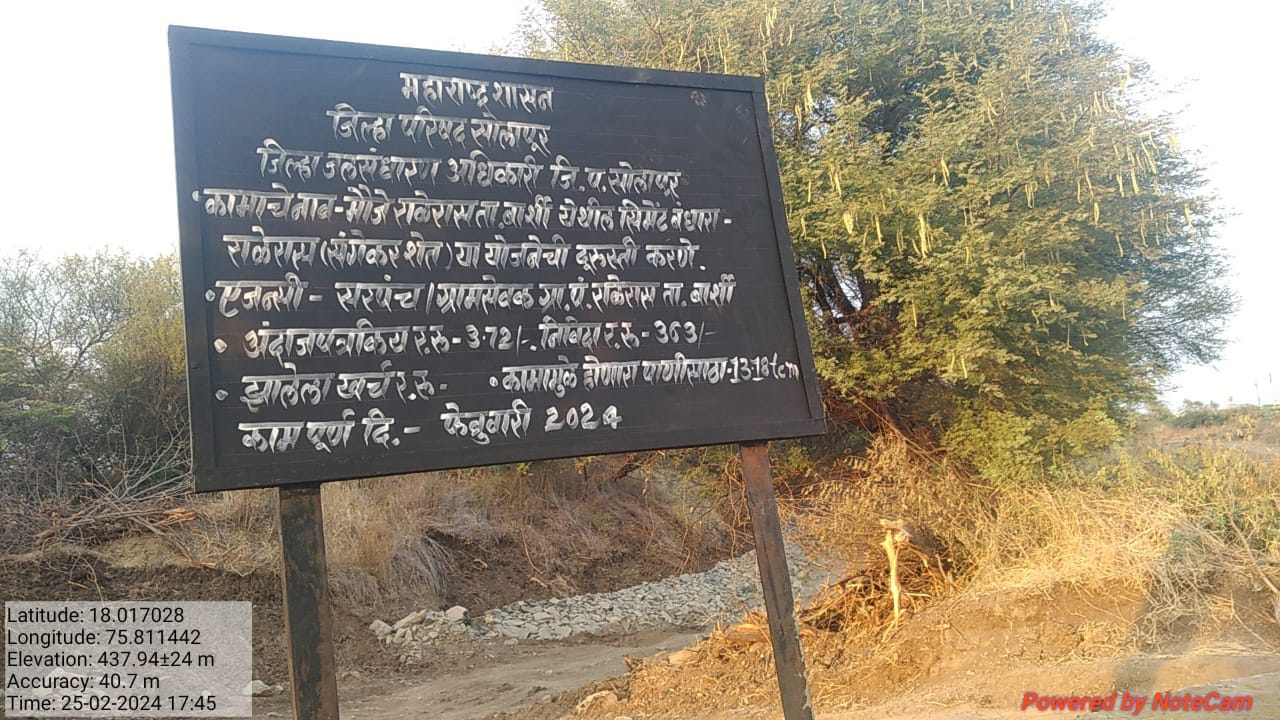 महाराष्ट्र शासन
जिल्हा परिषद सोलापूर
जिल्हा जलसंधारण अधिकारी जि.प.सोलापूर
• कामाचे नाव - मौजे राळेरास ता.बार्शी येथील सिमेंट बंधारा -
राळेरास (संगेकर शेत) या योजनेची दुरूस्ती करणे.
• एजन्सी - सरपंच/ग्रामसेवक ग्रा.पं.राळेरास ता. बार्शी
• अंदाजपत्रकिय र.रु - 3.72/-. निविदा र.रु - 353/-
• झालेला खर्च र.रु - • कामामुळे होणारा पाणीसाठा - 13.18 tcm
काम पूर्ण दि. - फेब्रुवारी 2024
Latitude: 18.017028
Longitude: 75.811442
Elevation: 437.94±24 m
Accuracy: 40.7 m
Time: 25-02-2024 17:45
Powered by NoteCam